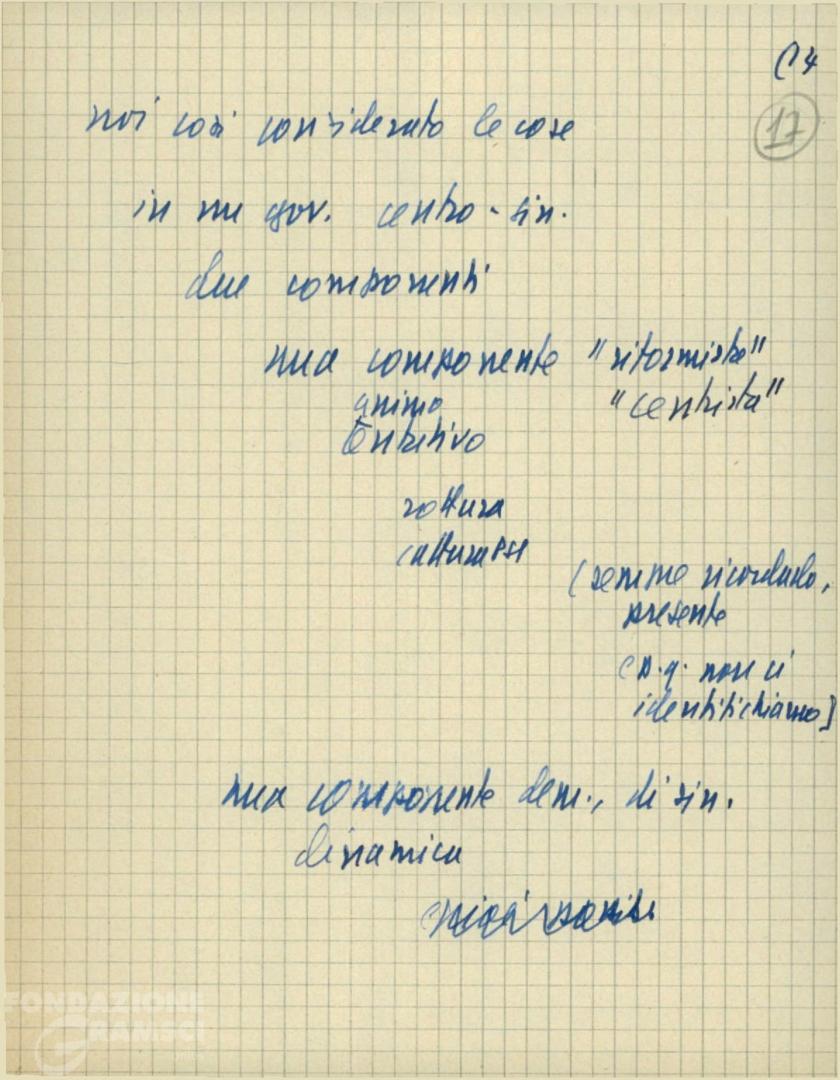 C4
17
noi così considerato le cose
in un gov. centro-sin.
due componenti
una componente "riformista"
"centrista"
animo
tentativo
rottura
(sempre ricordarlo,
presente
(p.q. non ci
identifichiamo]
una componente dem., di sin.
dinamica
FONDAZIONE
GRAMSCI